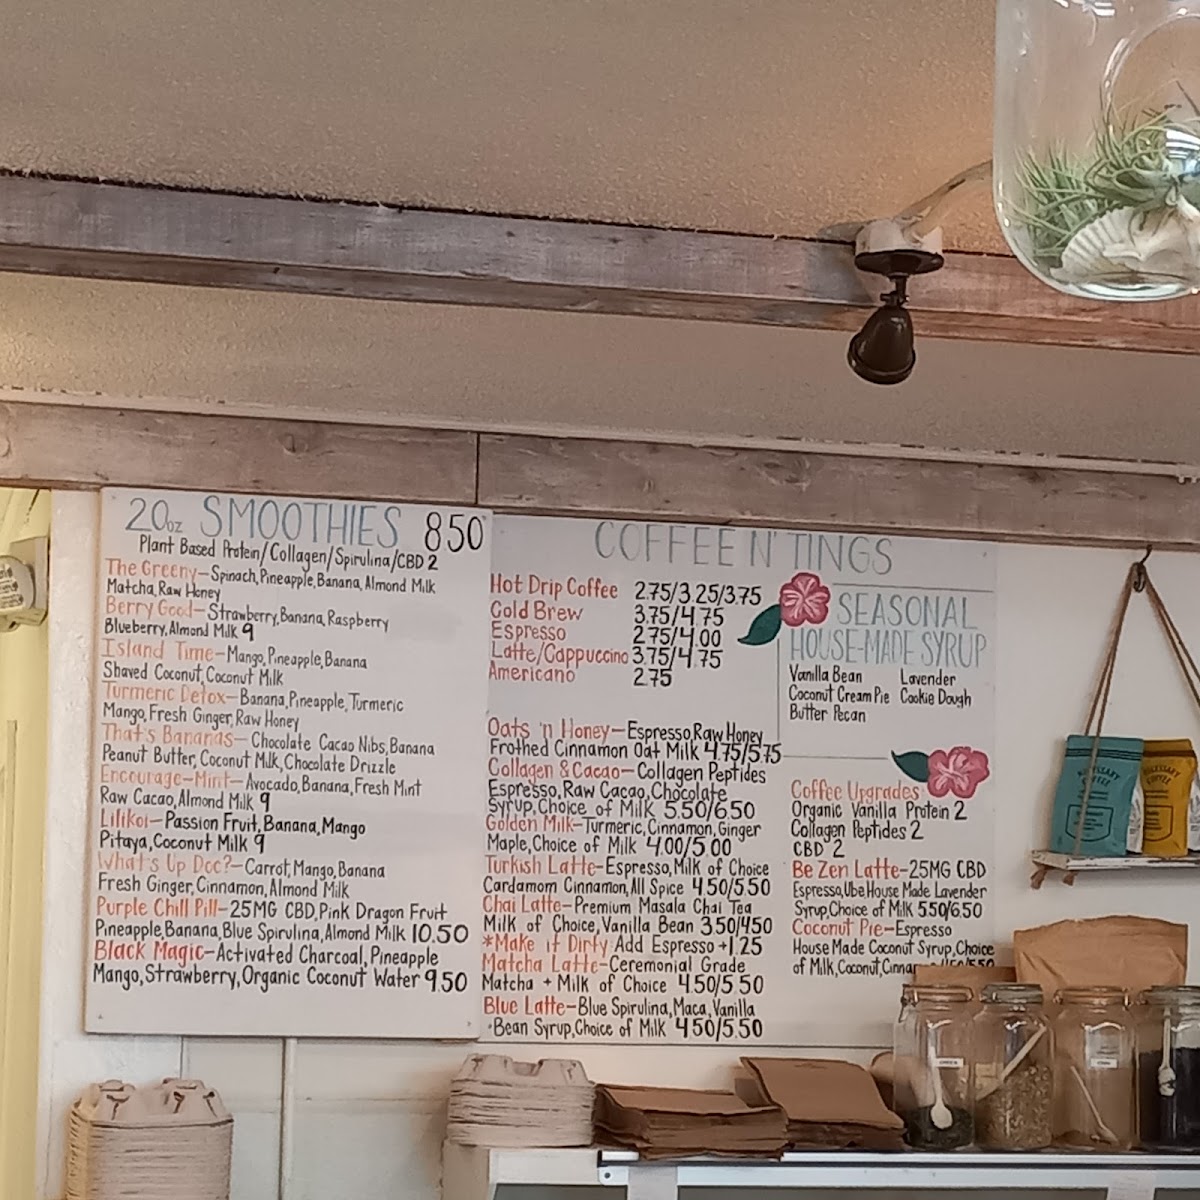 20oz SMOOTHIES 8.50
Plant Based Protein/Collagen/Spirulina/CBD 2
The Greeny-Spinach, Pineapple, Banana, Almond Milk
Matcha, Raw Honey
Berry Good-Strawberry, Banana, Raspberry
Blueberry, Almond Milk 9
Island Time-Mango, Pineapple, Banana
Shaved Coconut, Coconut Milk
Turmeric Detox-Banana, Pineapple, Turmeric
Mango, Fresh Ginger, Raw Honey
That's Bananas-Chocolate Cacao Nibs, Banana
Peanut Butter, Coconut Milk, Chocolate Drizzle
Encourage-Mint-Avocado, Banana, Fresh Mint
Raw Cacao, Almond Milk 9
Lilikoi-Passion Fruit, Banana, Mango
Pitaya, Coconut Milk 9
What's Up Doc?-Carrot, Mango, Banana
Fresh Ginger, Cinnamon, Almond Milk
Purple Chill Pill-25MG CBD, Pink Dragon Fruit
Pineapple, Banana, Blue Spirulina, Almond Milk 10.50
Black Magic-Activated Charcoal, Pineapple
Mango, Strawberry, Organic Coconut Water 9.50
COFFEE N' TINGS
Hot Drip Coffee 2.75/3.25/3.75
Cold Brew 3.75/4.75
Espresso 2.75/4.00
Latte/Cappuccino 3.75/4.75
Americano 2.75
Oats 'n Honey-Espresso, Raw Honey
Frothed Cinnamon Oat Milk 4.75/5.75
Collagen & Cacao-Collagen Peptides
Espresso, Raw Cacao, Chocolate
Syrup, Choice of Milk 5.50/6.50
Golden Milk-Turmeric, Cinnamon, Ginger
Maple, Choice of Milk 4.00/5.00
Turkish Latte-Espresso, Milk of Choice
Cardamom Cinnamon, All Spice 4.50/5.50
Chai Latte-Premium Masala Chai Tea
Milk of Choice, Vanilla Bean 3.50/4.50
*Make it Dirty Add Espresso +1.25
Matcha Latte-Ceremonial Grade
Matcha + Milk of Choice 4.50/5.50
Blue Latte-Blue Spirulina, Maca, Vanilla
Bean Syrup, Choice of Milk 4.50/5.50
SEASONAL
HOUSE-MADE SYRUP
Vanilla Bean Lavender
Coconut Cream Pie Cookie Dough
Butter Pecan
Coffee Upgrades
Organic Vanilla Protein 2
Collagen Peptides 2
CBD 2
Be Zen Latte-25MG CBD
Espresso, Ube House Made Lavender
Syrup, Choice of Milk 5.50/6.50
Coconut Pie-Espresso
House Made Coconut Syrup, Choice
of Milk, Coconut,
COFFEE